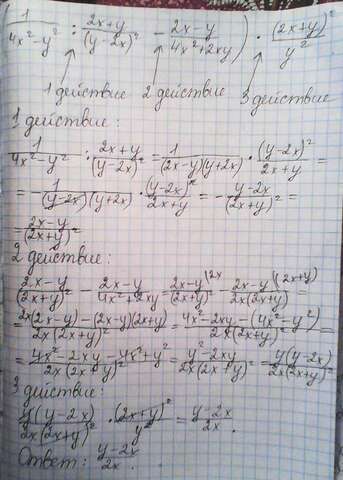 1/(4x²-y²) : (2x+y)/(y-2x)² - (2x-y)/(4x²+2xy)) · (2x+y)²/y²
1 действие 2 действие 3 действие
1 действие:
1/(4x²-y²) : (2x+y)/(y-2x)² = 1/((2x-y)(y+2x)) · (y-2x)²/(2x+y) =
= -1/((y-2x)(y+2x)) · (y-2x)²/(2x+y) = -(y-2x)/(2x+y)² =
= (2x-y)/(2x+y)²
2 действие:
(2x-y)/(2x+y)² - (2x-y)/(4x²+2xy) = (2x-y)/(2x+y)² (2x - (2x-y)/(2x(2x+y)) (2x+y) =
= (2x(2x-y)-(2x-y)(2x+y))/(2x(2x+y)²) = (4x²-2xy-(4x²-y²))/(2x(2x+y)²) =
= (4x²-2xy-4x²+y²)/(2x(2x+y)²) = (y²-2xy)/(2x(2x+y)²) = y(y-2x)/(2x(2x+y)²)
3 действие:
y(y-2x)/(2x(2x+y)²) · (2x+y)²/y² = (y-2x)/2x.
Ответ: (y-2x)/2x.